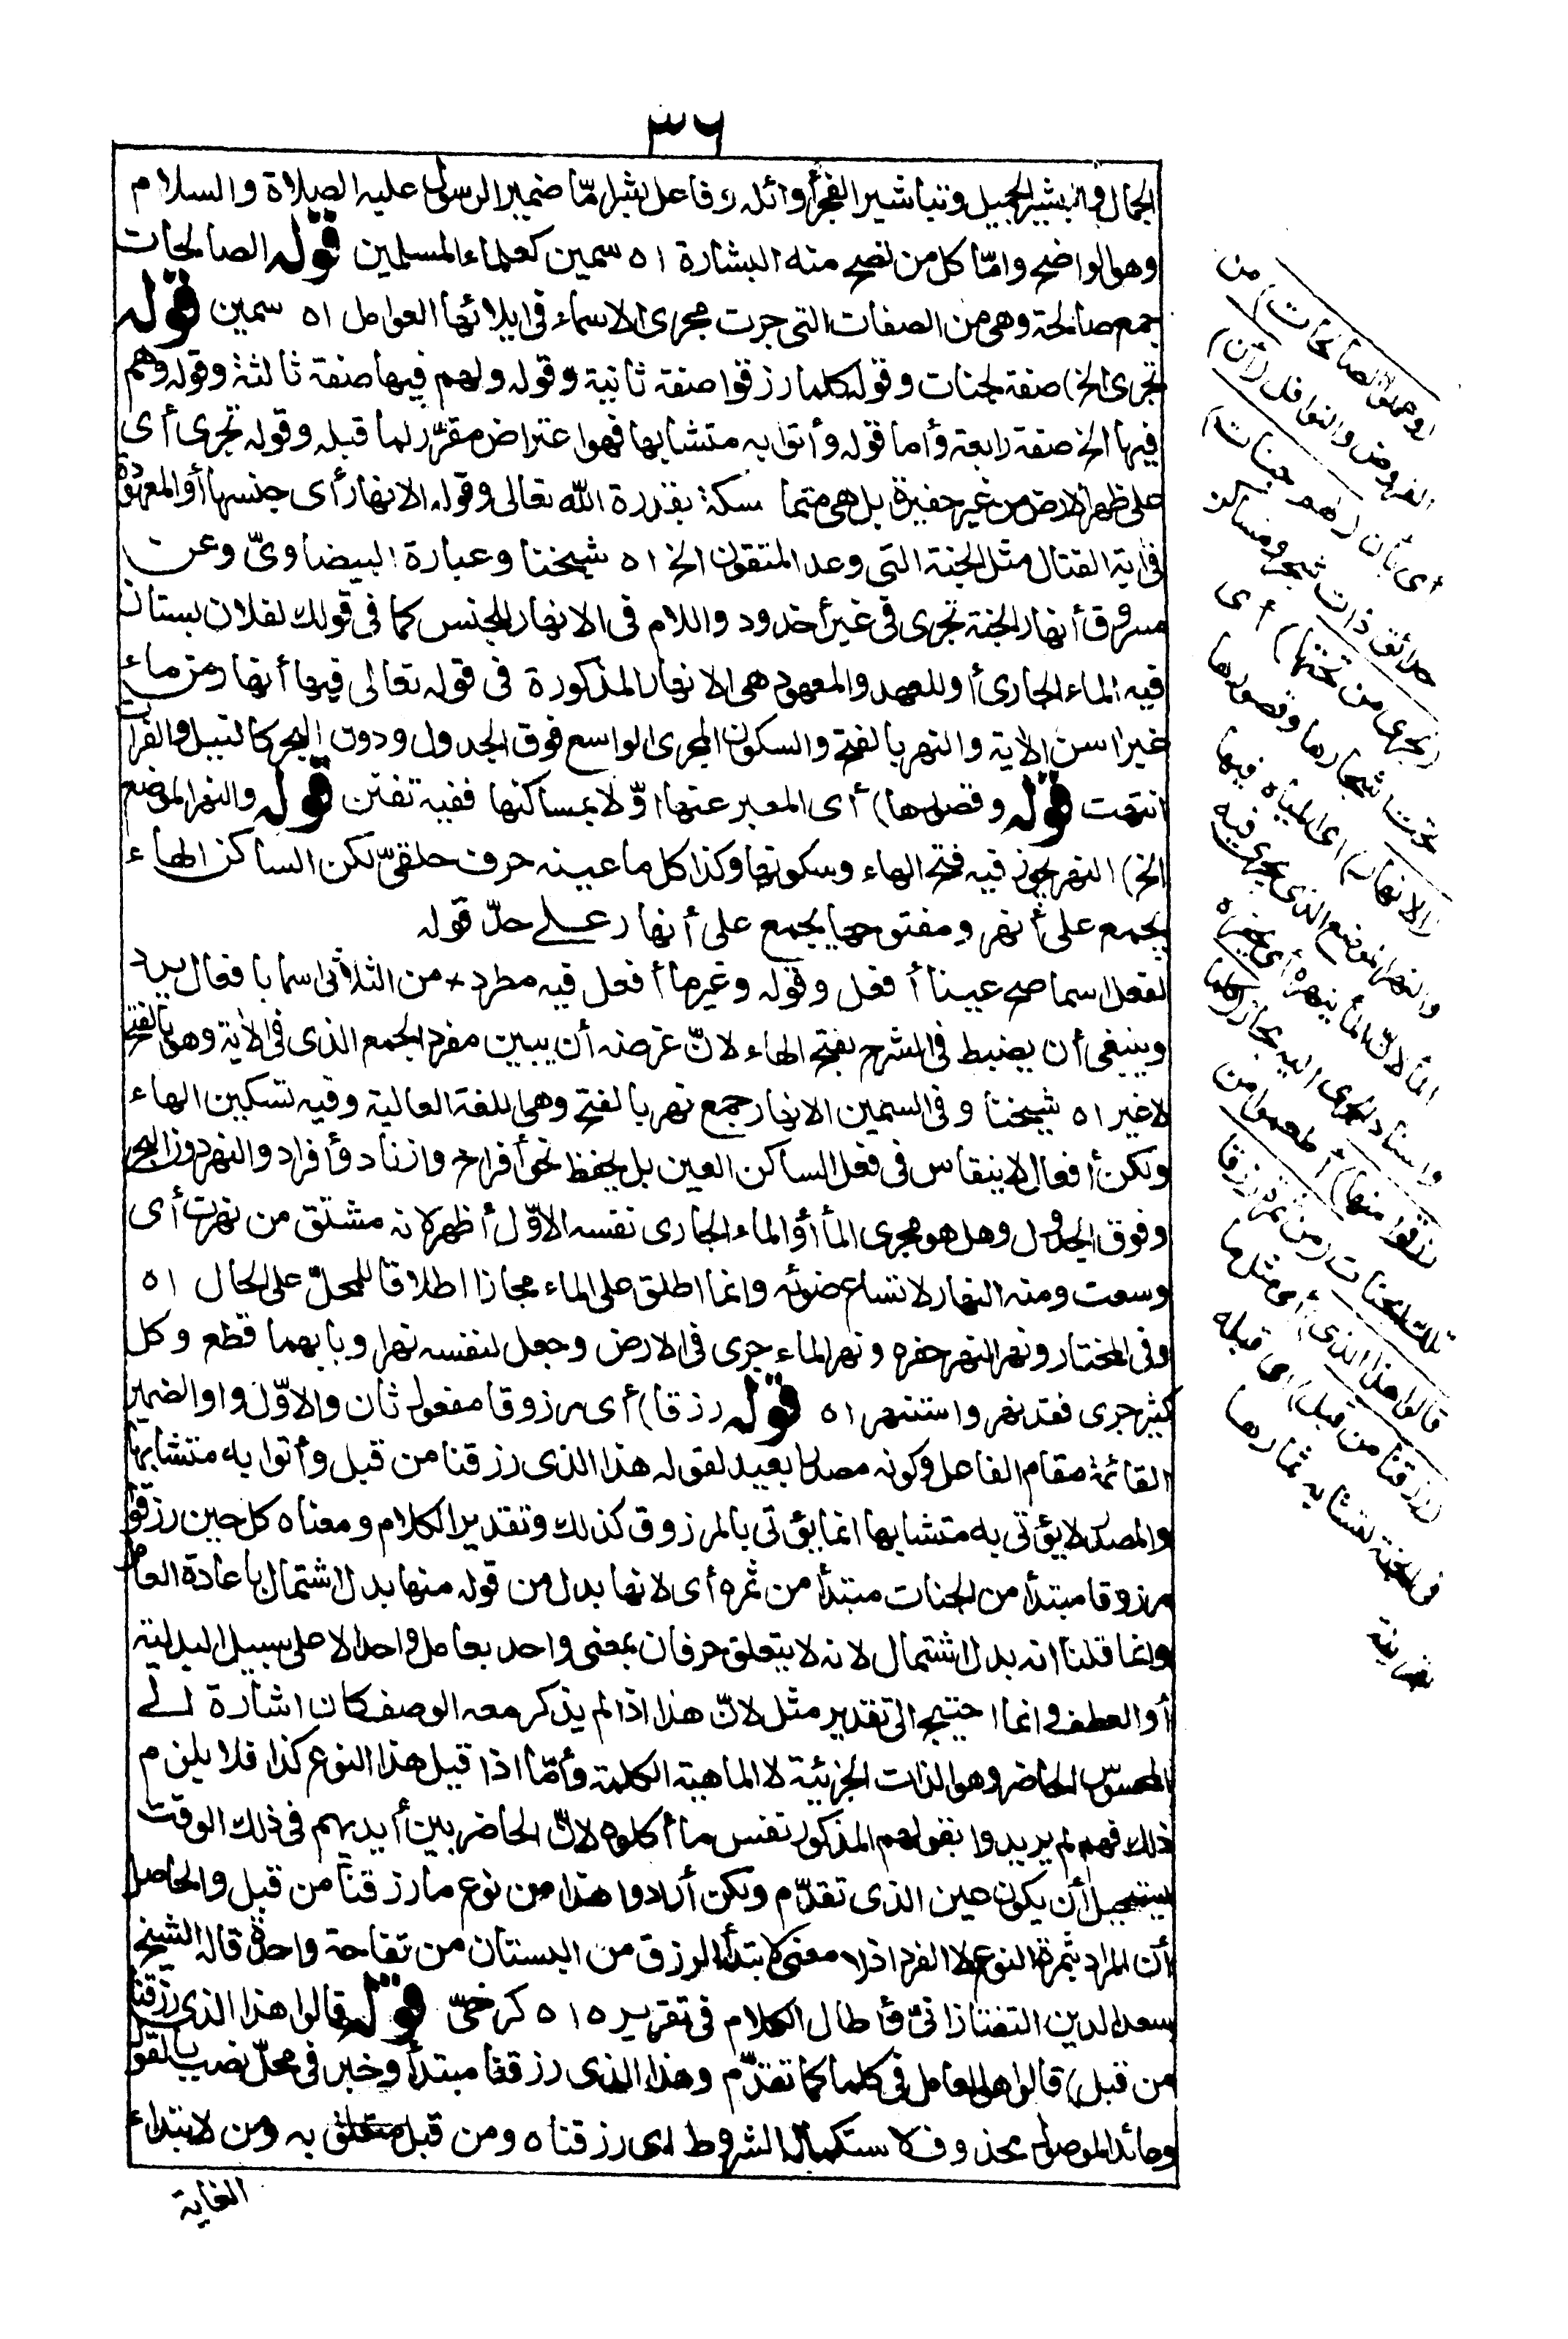 ٣٦
الجمال والبشير الجميل وتباشير الفجر أوائله وفاعل بشر امّا ضمير الرسول عليه الصلاة والسلام
وهو الواضح وامّا كل من تصح منه البشارة اه سمين كعلماء المسلمين قوله الصالحات
جمع صالحة وهي من الصفات التى جرت مجرى الاسماء فى ايلائها العوامل اه سمين قوله
تجرى الخ) صفة لجنات وقوله كلما رزقوا صفة ثانية وقوله ولهم فيها صفة ثالثة وقوله وهم
فيها الخ صفة رابعة وأما قوله وأتوا به متشابها فهو اعتراض مقرّر لما قبله وقوله تجرى أى
على ظهر الارض من غير حفيرة بل هى متماسكة بقدرة الله تعالى وقوله الانهار أى جنسها أو المعهودة
فى أية القتال مثل الجنة التى وعد المتقون الخ اه شيخنا وعبارة البيضاوىّ وعن
مسروق أنهار الجنة تجرى فى غير أخدود واللام فى الانهار للجنس كما فى قولك لفلان بستان
فيه الماء الجارى أو للعهد والمعهود هى الانهار المذكورة فى قوله تعالى فيها أنهار من ماء
غير اسن الأية والنهر بالفتح والسكون المجرى الواسع فوق الجدول ودون البحر كالنيل والفرات
انتهت قوله وقصورها) أى المعبر عنها اوّلا بمساكنها ففيه تفنن قوله والنهر الموضع
الخ) النهر يجوز فيه فتح الهاء وسكونها وكذا كل ما عينه حرف حلقىّ لكن الساكن الهاء
يجمع على أنهر ومفتوحها يجمع على أنهار على حلّ قوله
لفعل اسما صح عينا أفعل وقوله وغير ما أفعل فيه مطرد * من الثلاثى اسما بافعال يرد
وينبغى أن يضبط فى الشرح بفتح الهاء لانّ غرضه أن يبين مفرد الجمع الذى فى الأية وهو بالفتح
لاغير اه شيخنا وفى السمين الانهار جمع نهر بالفتح وهى اللغة العالية وفيه تسكين الهاء
ولكن أفعال لا ينقاس فى فعل الساكن العين بل يحفظ نحو أفراخ وازناد وأفراد والنهر دون البحر
وفوق الجدول وهل هو مجرى الماأ أو الماء الجارى نفسه الاوّل أظهر لانه مشتق من نهرت أى
وسعت ومنه النهار لاتساع ضوئه وانما اطلق على الماء مجازا اطلاقا للمحلّ على الحال اه
وفى المختار ونهر النهر حفره ونهر الماء جرى فى الارض وجعل لنفسه نهرا وبابهما قطع وكل
كثير جرى فقد نهر واستنهر اه قوله رزقا) أى مرزوقا مفعول ثان والاوّل واو الضمير
القائمة مقام الفاعل وكونه مصدرا بعيد لقوله هذا الذى رزقنا من قبل وأتوا به متشابها
والمصدر لا يؤتى به متشابها انما يؤتى بالمرزوق كذلك وتقدير الكلام ومعناه كل حين رزقوا
مرزوقا مبتدأ من الجنات مبتدأ من ثمره أى لانها بدل من قوله منها بدل اشتمال باعادة العامل
وانما قلنا انه بدل اشتمال لانه لا يتعلق حرفان بمعنى واحد بعامل واحد الا على سبيل البدلية
أو العطف وانما احتيج الى تقدير مثل لانّ هذا اذا لم يذكر معه الوصف كان اشارة الى
المحسوس الحاضر وهو الذات الجزئية لا الماهية الكلية وأمّا اذا قيل هذا النوع كذا فلا يلزم
ذلك فهم لم يريدوا بقولهم المذكور نفس ما أكلوه لانّ الحاضر بين أيديهم فى ذلك الوقت
يستحيل أن يكون عين الذى تقدّم ولكن أرادوا هذا من نوع ما رزقنا من قبل والحاصل
أن المراد بثمرة النوع لا الفرد اذ لا معنى لابتدأ الرزق من البستان من تفاحة واحدة قاله الشيخ
سعد الدين التفتازانىّ وأطال الكلام فى تقريره اه كرخىّ قوله قالوا هذا الذى رزقنا
من قبل) قالوا هو العامل فى كلما كما تقدّم وهذا الذى رزقنا مبتدأ وخبر فى محلّ نصب بالقول
وعائد الموصول محذوف لاستكمال الشروط اى رزقناه ومن قبل متعلق به ومن لابتداء
الغاية
(وعملوا الصالحات) من
الفروض والنوافل (أن)
أى بأن (لهم جنات)
حدائق ذات شجر ومساكن
(تجرى من تحتها) أى
تحت اشجارها وقصورها
(الانهار) اى المياه فيها
والنهر الموضع الذى يجرى فيه
الماأ لانّ الماأ ينهره أى يحفره
واسناد الجرى اليه مجاز (كلما
رزقوا منها) أطعموا من
تلك الجنات (من ثمرة رزقا
قالوا هذا الذى) أى مثل ما
(رزقنا من قبل) اى قبله
فى الجنة لتشابه ثمارها
بقرينة